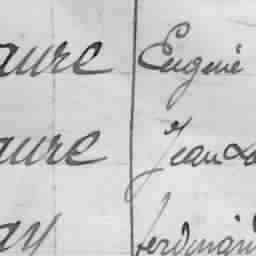 aure Eugène
aure Jean Lo
ay ferdinand